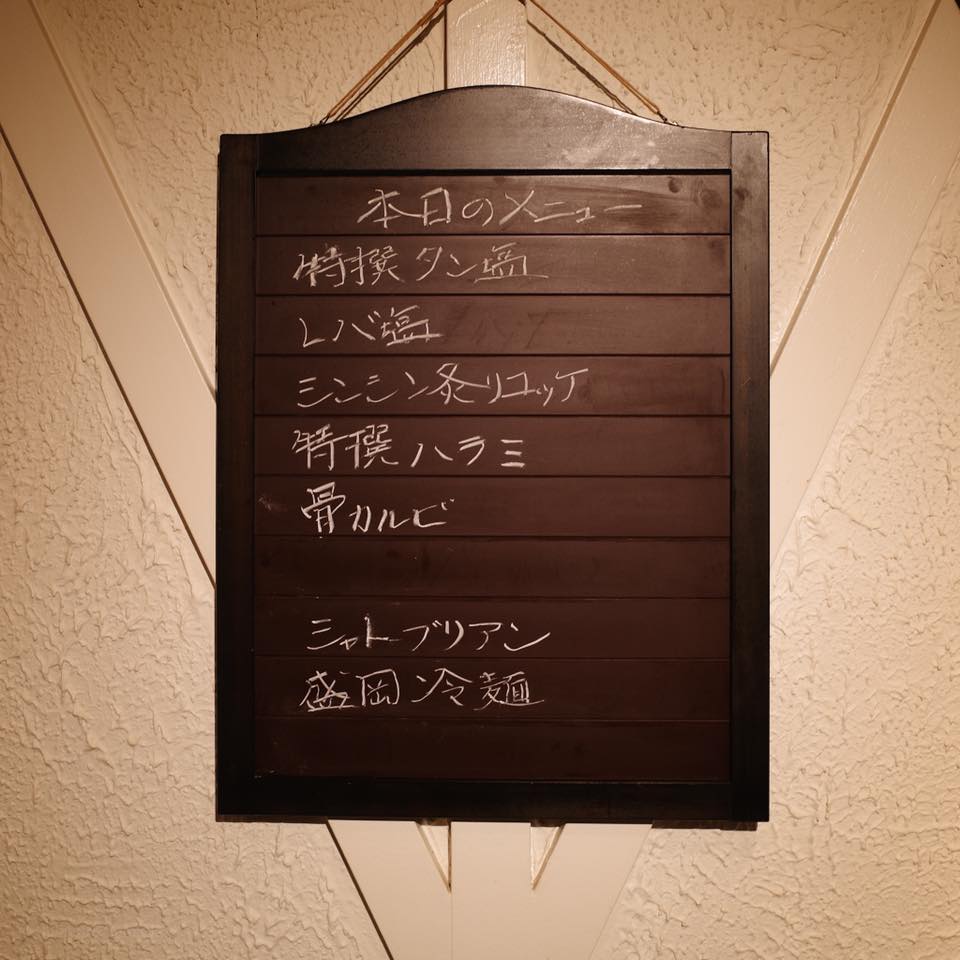 本日のメニュー
特撰タン塩
レバ塩
シンシン炙リユッケ
特撰ハラミ
骨カルビ
シャトーブリアン
盛岡冷麺